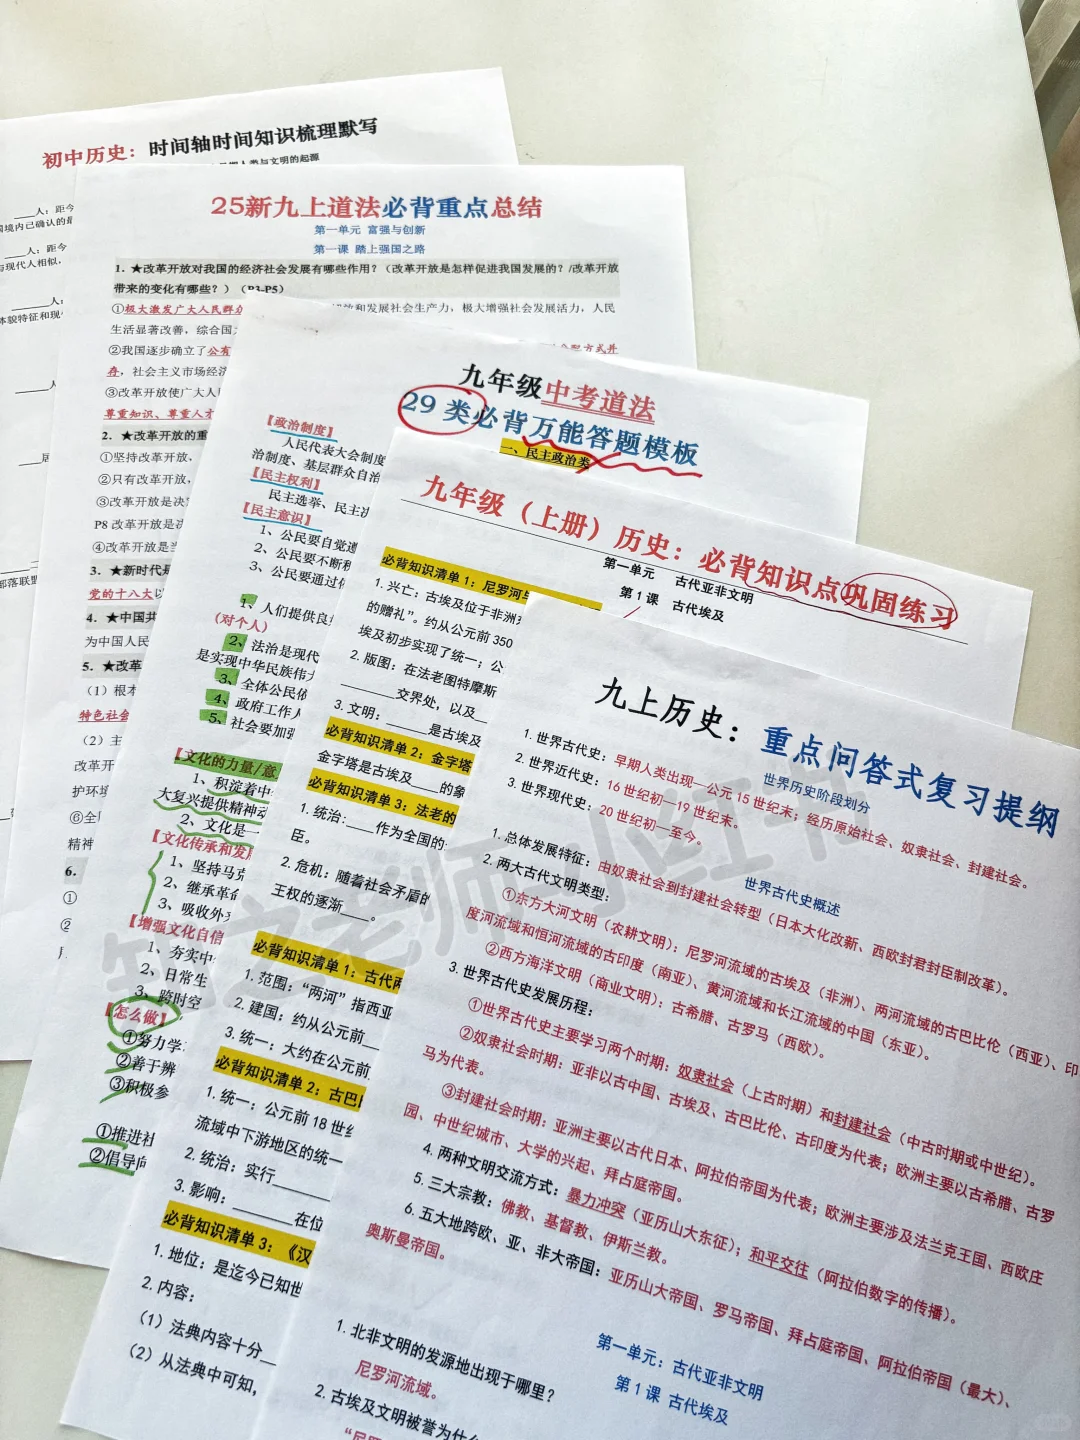 初中历史：时间轴时间知识梳理默写
人类与文明的起源
人：距今
国境内已确认的最
人：距今
与现代人相似，
人：
体貌特征和现
部落联盟
25新九上道法必背重点总结
第一单元 富强与创新
第一课 踏上强国之路
1．★改革开放对我国的经济社会发展有哪些作用？（改革开放是怎样促进我国发展的？/改革开放
带来的变化有哪些？）（P3-P5）
①极大激发广大人民群众
放和发展社会生产力，极大增强社会发展活力，人民
生活显著改善，综合国
②我国逐步确立了公有
分配方式并
存，社会主义市场经济
③改革开放使广大人民
尊重知识、尊重人才
2．★改革开放的重
①坚持改革开放，
②只有改革开放，
③改革开放是决
P8 改革开放是决
④改革开放是当
3．★新时代是
党的十八大以
4．★中国共
为中国人民
5．★改革
（1）根本
特色社会
（2）主
改革开
护环境
⑥全
精神
6．
①
②
九年级中考道法
29 类必背万能答题模板
一、民主政治类
【政治制度】
人民代表大会制度
治制度、基层群众自治
【民主权利】
民主选举、民主决
【民主意识】
1、公民要自觉遵
2、公民要不断积
3、公民要通过
1、人们提供良
（对个人）
2、法治是现代
是实现中华民族伟大
3、全体公民依
4、政府工作人
5、社会要加强
【文化的力量/意
1、积淀着中
大复兴提供精神动
2、文化是一
【文化传承和发展
1、坚持马克
2、继承革命
3、吸收外来
【增强文化自信
1、夯实中
2、日常生
3、跨时空
【怎么做】
①努力学
②善于辨
③积极参
①推进社
②倡导向
九年级（上册）历史：必背知识点巩固练习
第一单元 古代亚非文明
第1课 古代埃及
必背知识清单1：尼罗河与
1. 兴亡：古埃及位于非洲东
的赠礼”。约从公元前350
埃及初步实现了统一；公
2. 版图：在法老图特摩斯
________交界处，以及_
3. 文明：______是古埃及
必背知识清单2：金字塔
金字塔是古埃及____的象
必背知识清单3：法老的
1. 统治：____作为全国的
臣。
2. 危机：随着社会矛盾的
王权的逐渐____。
必背知识清单1：古代两
1. 范围：“两河”指西亚
2. 建国：约从公元前
3. 统一：大约在公元前
必背知识清单2：古巴比
1. 统一：公元前18世纪
流域中下游地区的统一
2. 统治：实行________
3. 影响：________在位
必背知识清单3：《汉
1. 地位：是迄今已知世
2. 内容：
（1）法典内容十分__
（2）从法典中可知，
九上历史：重点问答式复习提纲
世界历史阶段划分
1. 世界古代史：早期人类出现—公元15世纪末；经历原始社会、奴隶社会、封建社会。
2. 世界近代史：16世纪初—19世纪末。
3. 世界现代史：20世纪初—至今。
世界古代史概述
1. 总体发展特征：由奴隶社会到封建社会转型（日本大化改新、西欧封君封臣制改革）。
2. 两大古代文明类型：
①东方大河文明（农耕文明）：尼罗河流域的古埃及（非洲）、两河流域的古巴比伦（西亚）、印
度河流域和恒河流域的古印度（南亚）、黄河流域和长江流域的中国（东亚）。
②西方海洋文明（商业文明）：古希腊、古罗马（西欧）。
3. 世界古代史发展历程：
①世界古代史主要学习两个时期：奴隶社会（上古时期）和封建社会（中古时期或中世纪）。
②奴隶社会时期：亚非以古中国、古埃及、古巴比伦、古印度为代表；欧洲主要以古希腊、古罗
马为代表。
③封建社会时期：亚洲主要以古代日本、阿拉伯帝国为代表；欧洲主要涉及法兰克王国、西欧庄
园、中世纪城市、大学的兴起、拜占庭帝国。
4. 两种文明交流方式：暴力冲突（亚历山大东征）；和平交往（阿拉伯数字的传播）。
5. 三大宗教：佛教、基督教、伊斯兰教。
6. 五大地跨欧、亚、非大帝国：亚历山大帝国、罗马帝国、拜占庭帝国、阿拉伯帝国（最大）、
奥斯曼帝国。
第一单元：古代亚非文明
第1课 古代埃及
1. 北非文明的发源地出现于哪里？
尼罗河流域。
2. 古埃及文明被誉为什么
“尼
老师 小红书